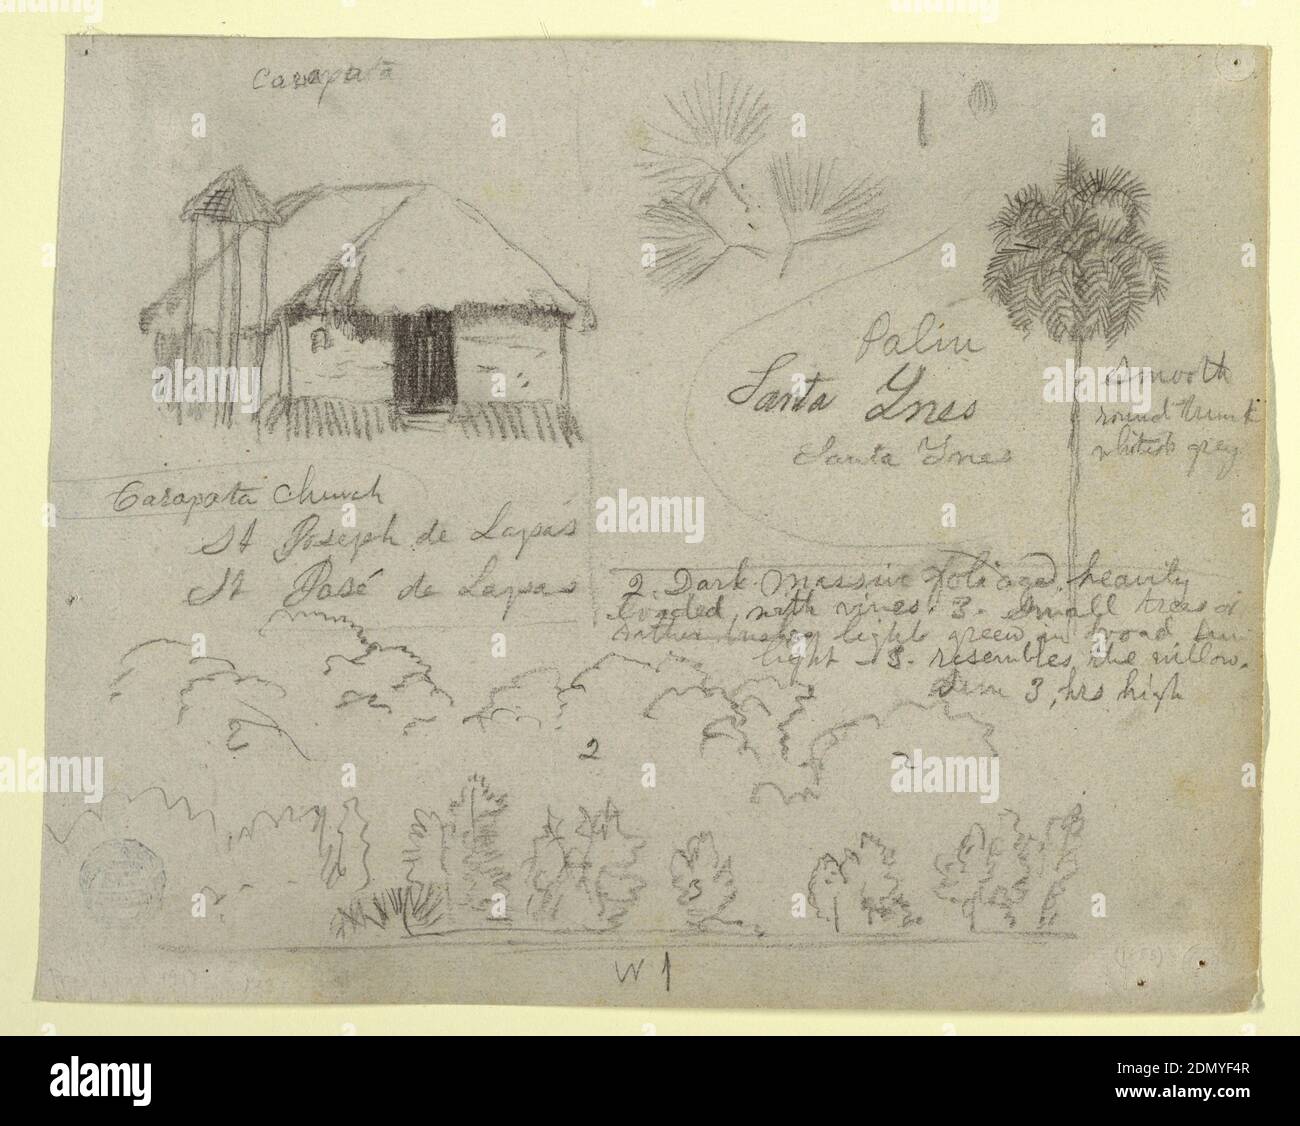 Carapata
Palm
Santa Ynes
Santa Ynes
Smooth
round trunk
whitish grey
Carapata Church
St Joseph de Lapas
St José de Lapas
2. Dark massive foliage heavily
loaded with vines. 3. Small trees or
rather bushes light green in broad sun
light - 3. resembles the willow.
Sun 3 hrs high
2
2
2
3
W 1
(1888)
alamy
Image ID: 2DMYF4R
www.alamy.com